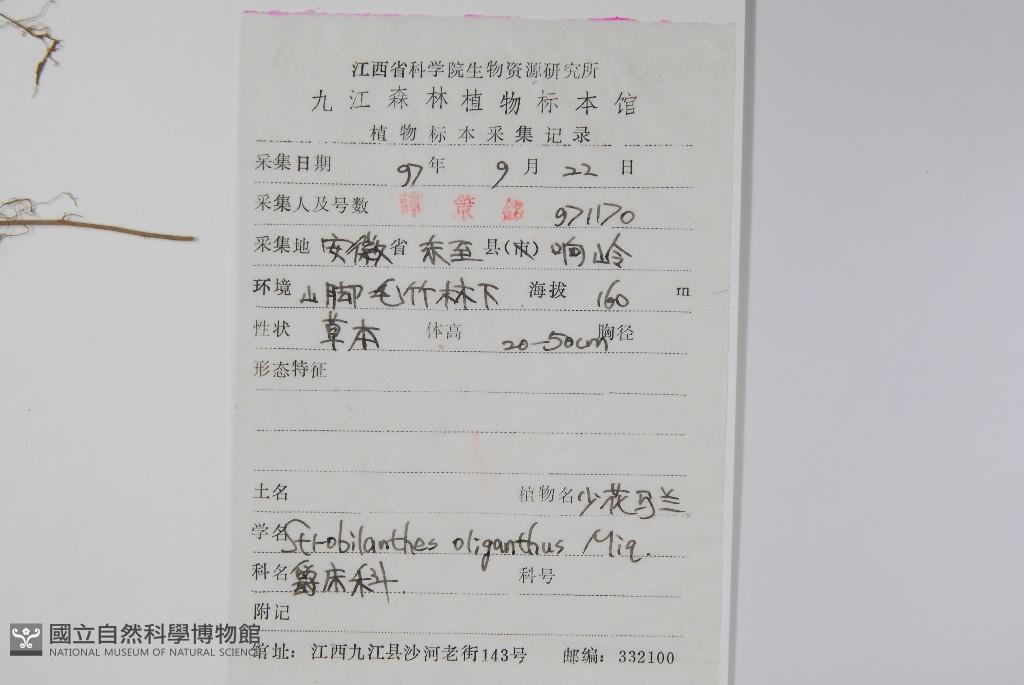 江西省科学院生物资源研究所
九江森林植物标本馆
植物标本采集记录
采集日期 97年 9月 22日
采集人及号数 譚策銘 971170
采集地 安徽省 东至 县(市) 响岭
环境 山脚毛竹林下 海拔 160 m
性状 草本 体高 20-50cm 胸径
形态特征
土名 植物名 少花马兰
学名 Strobilanthes oliganthus Miq.
科名 爵床科. 科号
附记
馆址: 江西九江县沙河老街143号 邮编: 332100
國立自然科學博物館
NATIONAL MUSEUM OF NATURAL SCIENCE